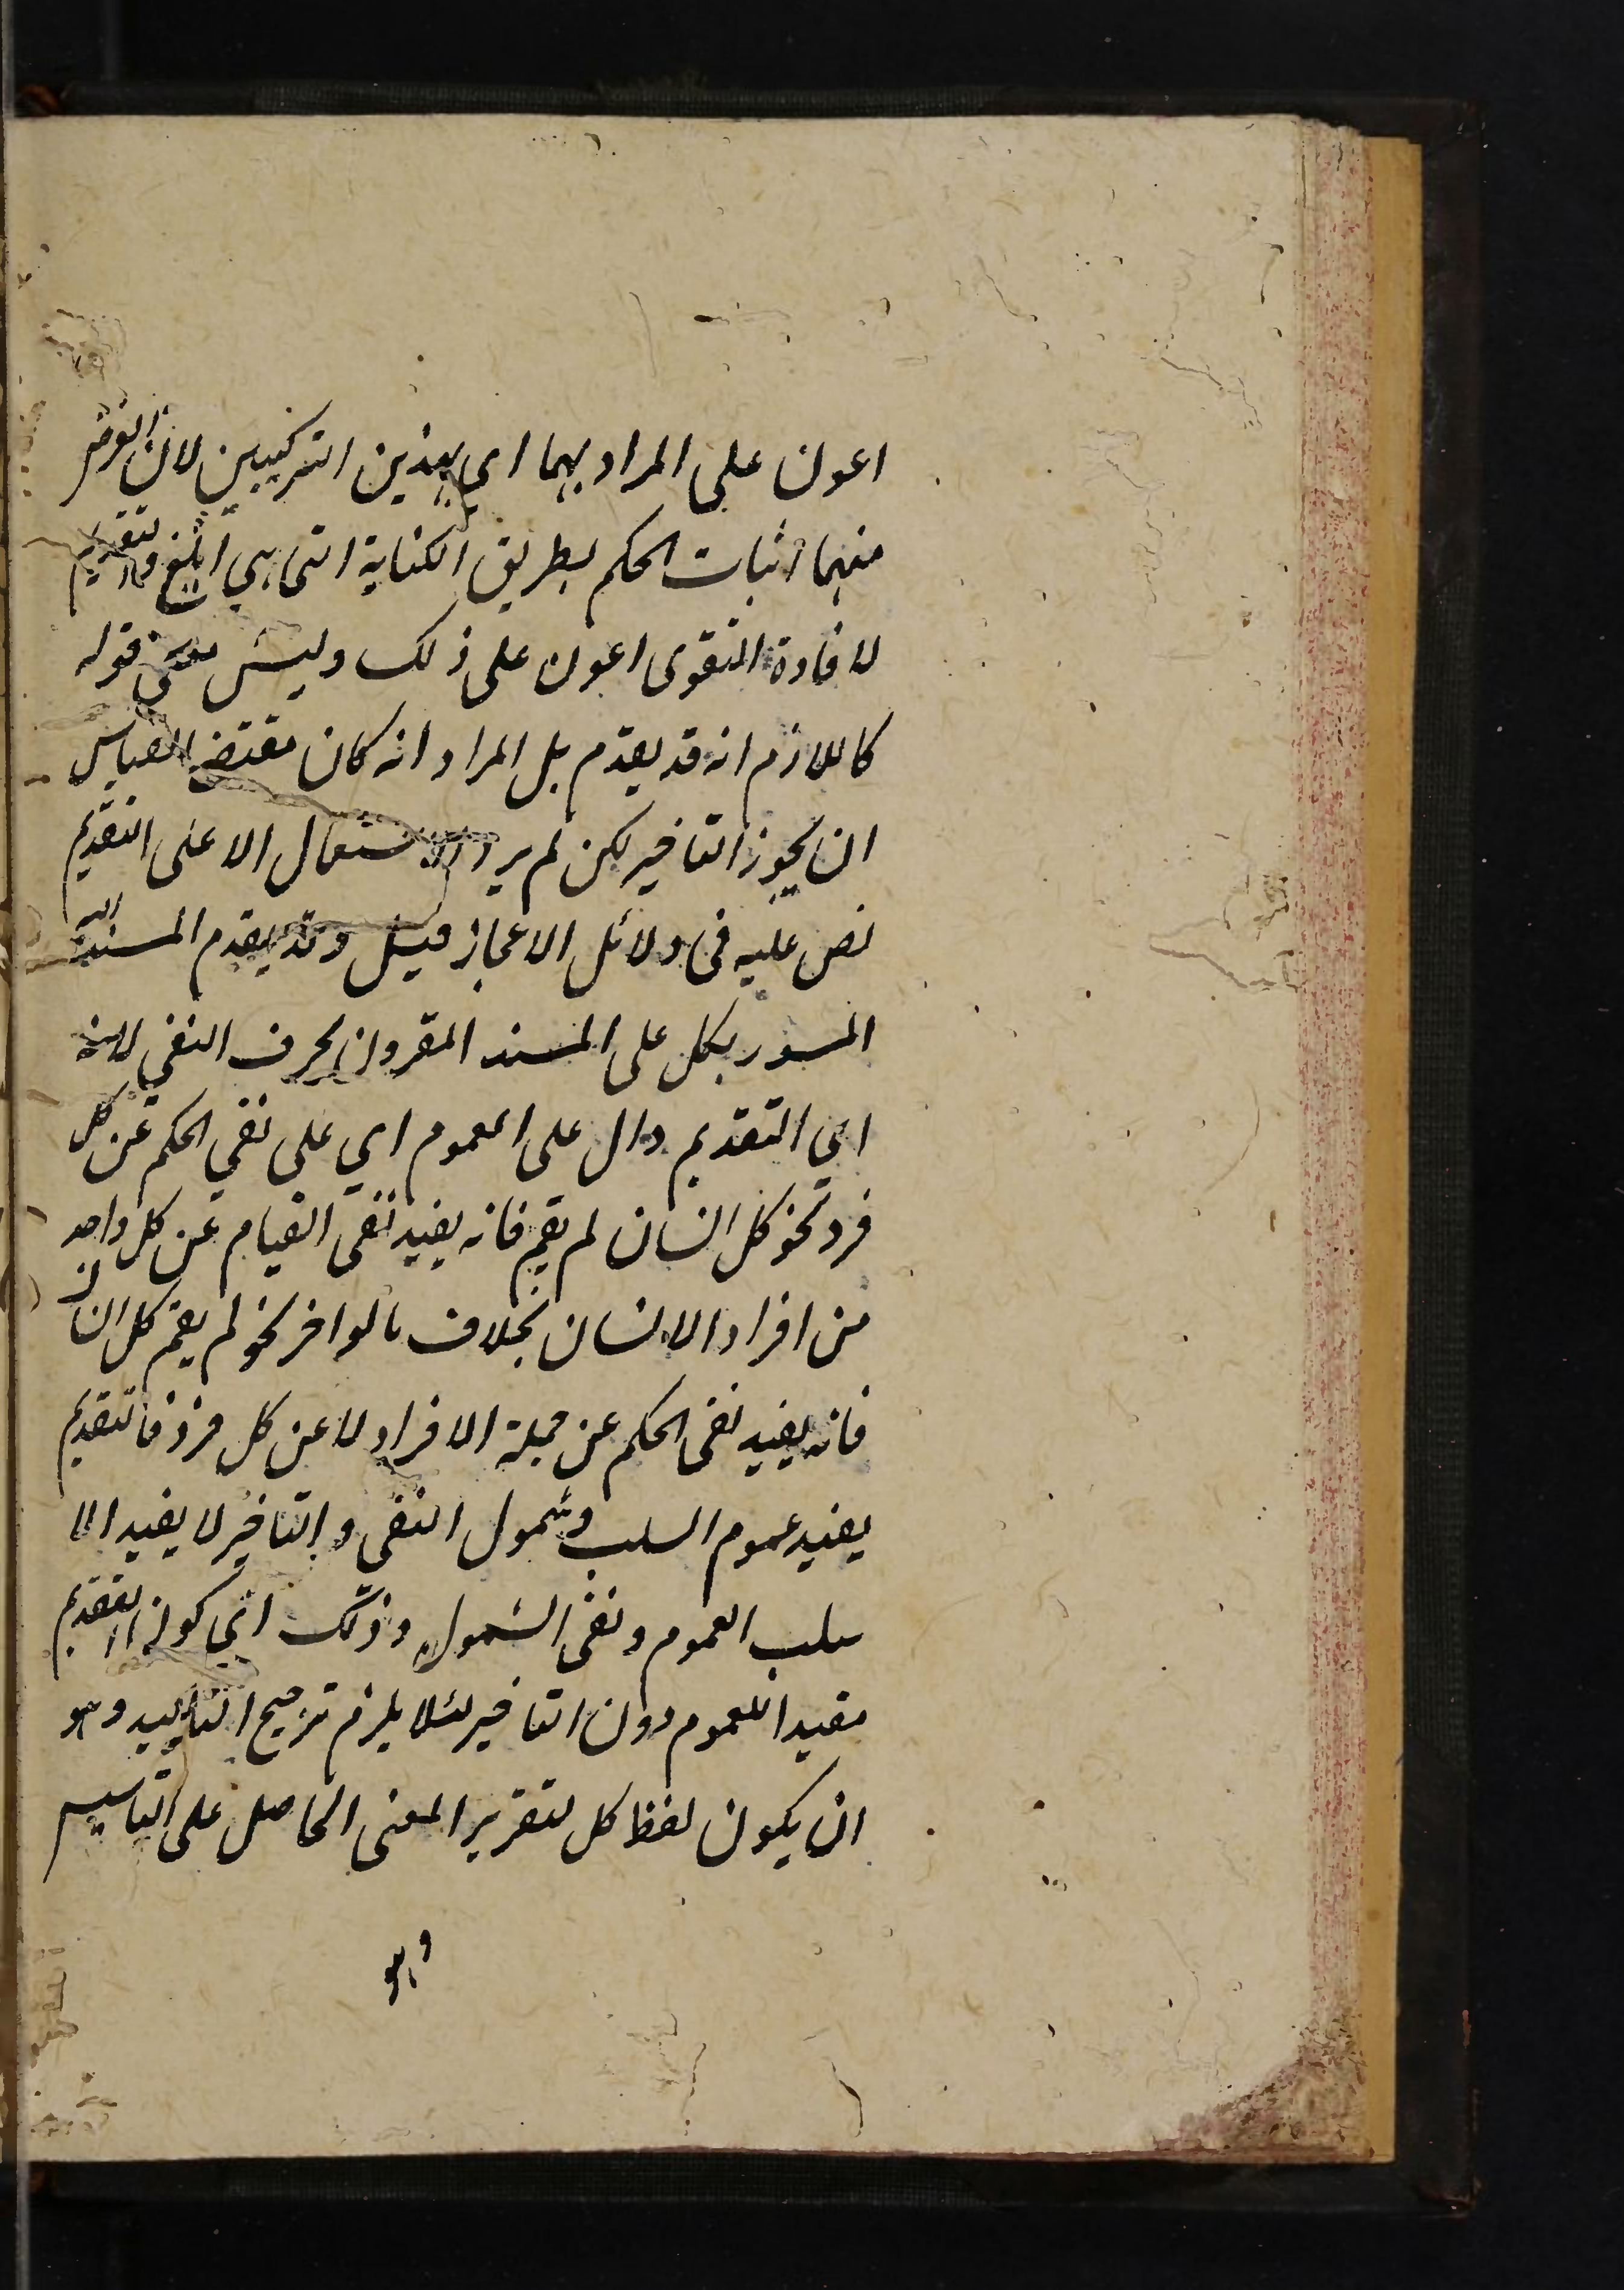 اعون على المراد بهما اي بهذين التركيبين لان الغرض
منهما اثبات الحكم بطريق الكناية التي هي ابلغ والتقديم
لافادة التقوى اعون على ذلك وليس معنى قوله
كاللازم انه قد يقدم بل المراد انه كان مقتضى القياس
ان يجوز التاخير لكن لم يرد الاستعمال الا على التقديم
نص عليه في دلائل الاعجاز قيل وقد يقدم المسند اليه
المسور بكل على المسند المقرون بحرف النفي لانه
اي التقديم دال على العموم اي على نفي الحكم عن كل
فرد نحو كل انسان لم يقم فانه يفيد نفي القيام عن كل واحد
من افراد الانسان بخلاف ما لو اخر نحو لم يقم كل انسان
فانه يفيد نفي الحكم عن جملة الافراد لا عن كل فرد فالتقديم
يفيد عموم السلب وشمول النفي والتاخير لا يفيد الا
سلب العموم ونفي الشمول وذلك اي كون التقديم
مفيدا للعموم دون التاخير لئلا يلزم ترجيح التاكيد وهو
ان يكون لفظ كل لتقرير المعنى الحاصل على التاسيس
وهو